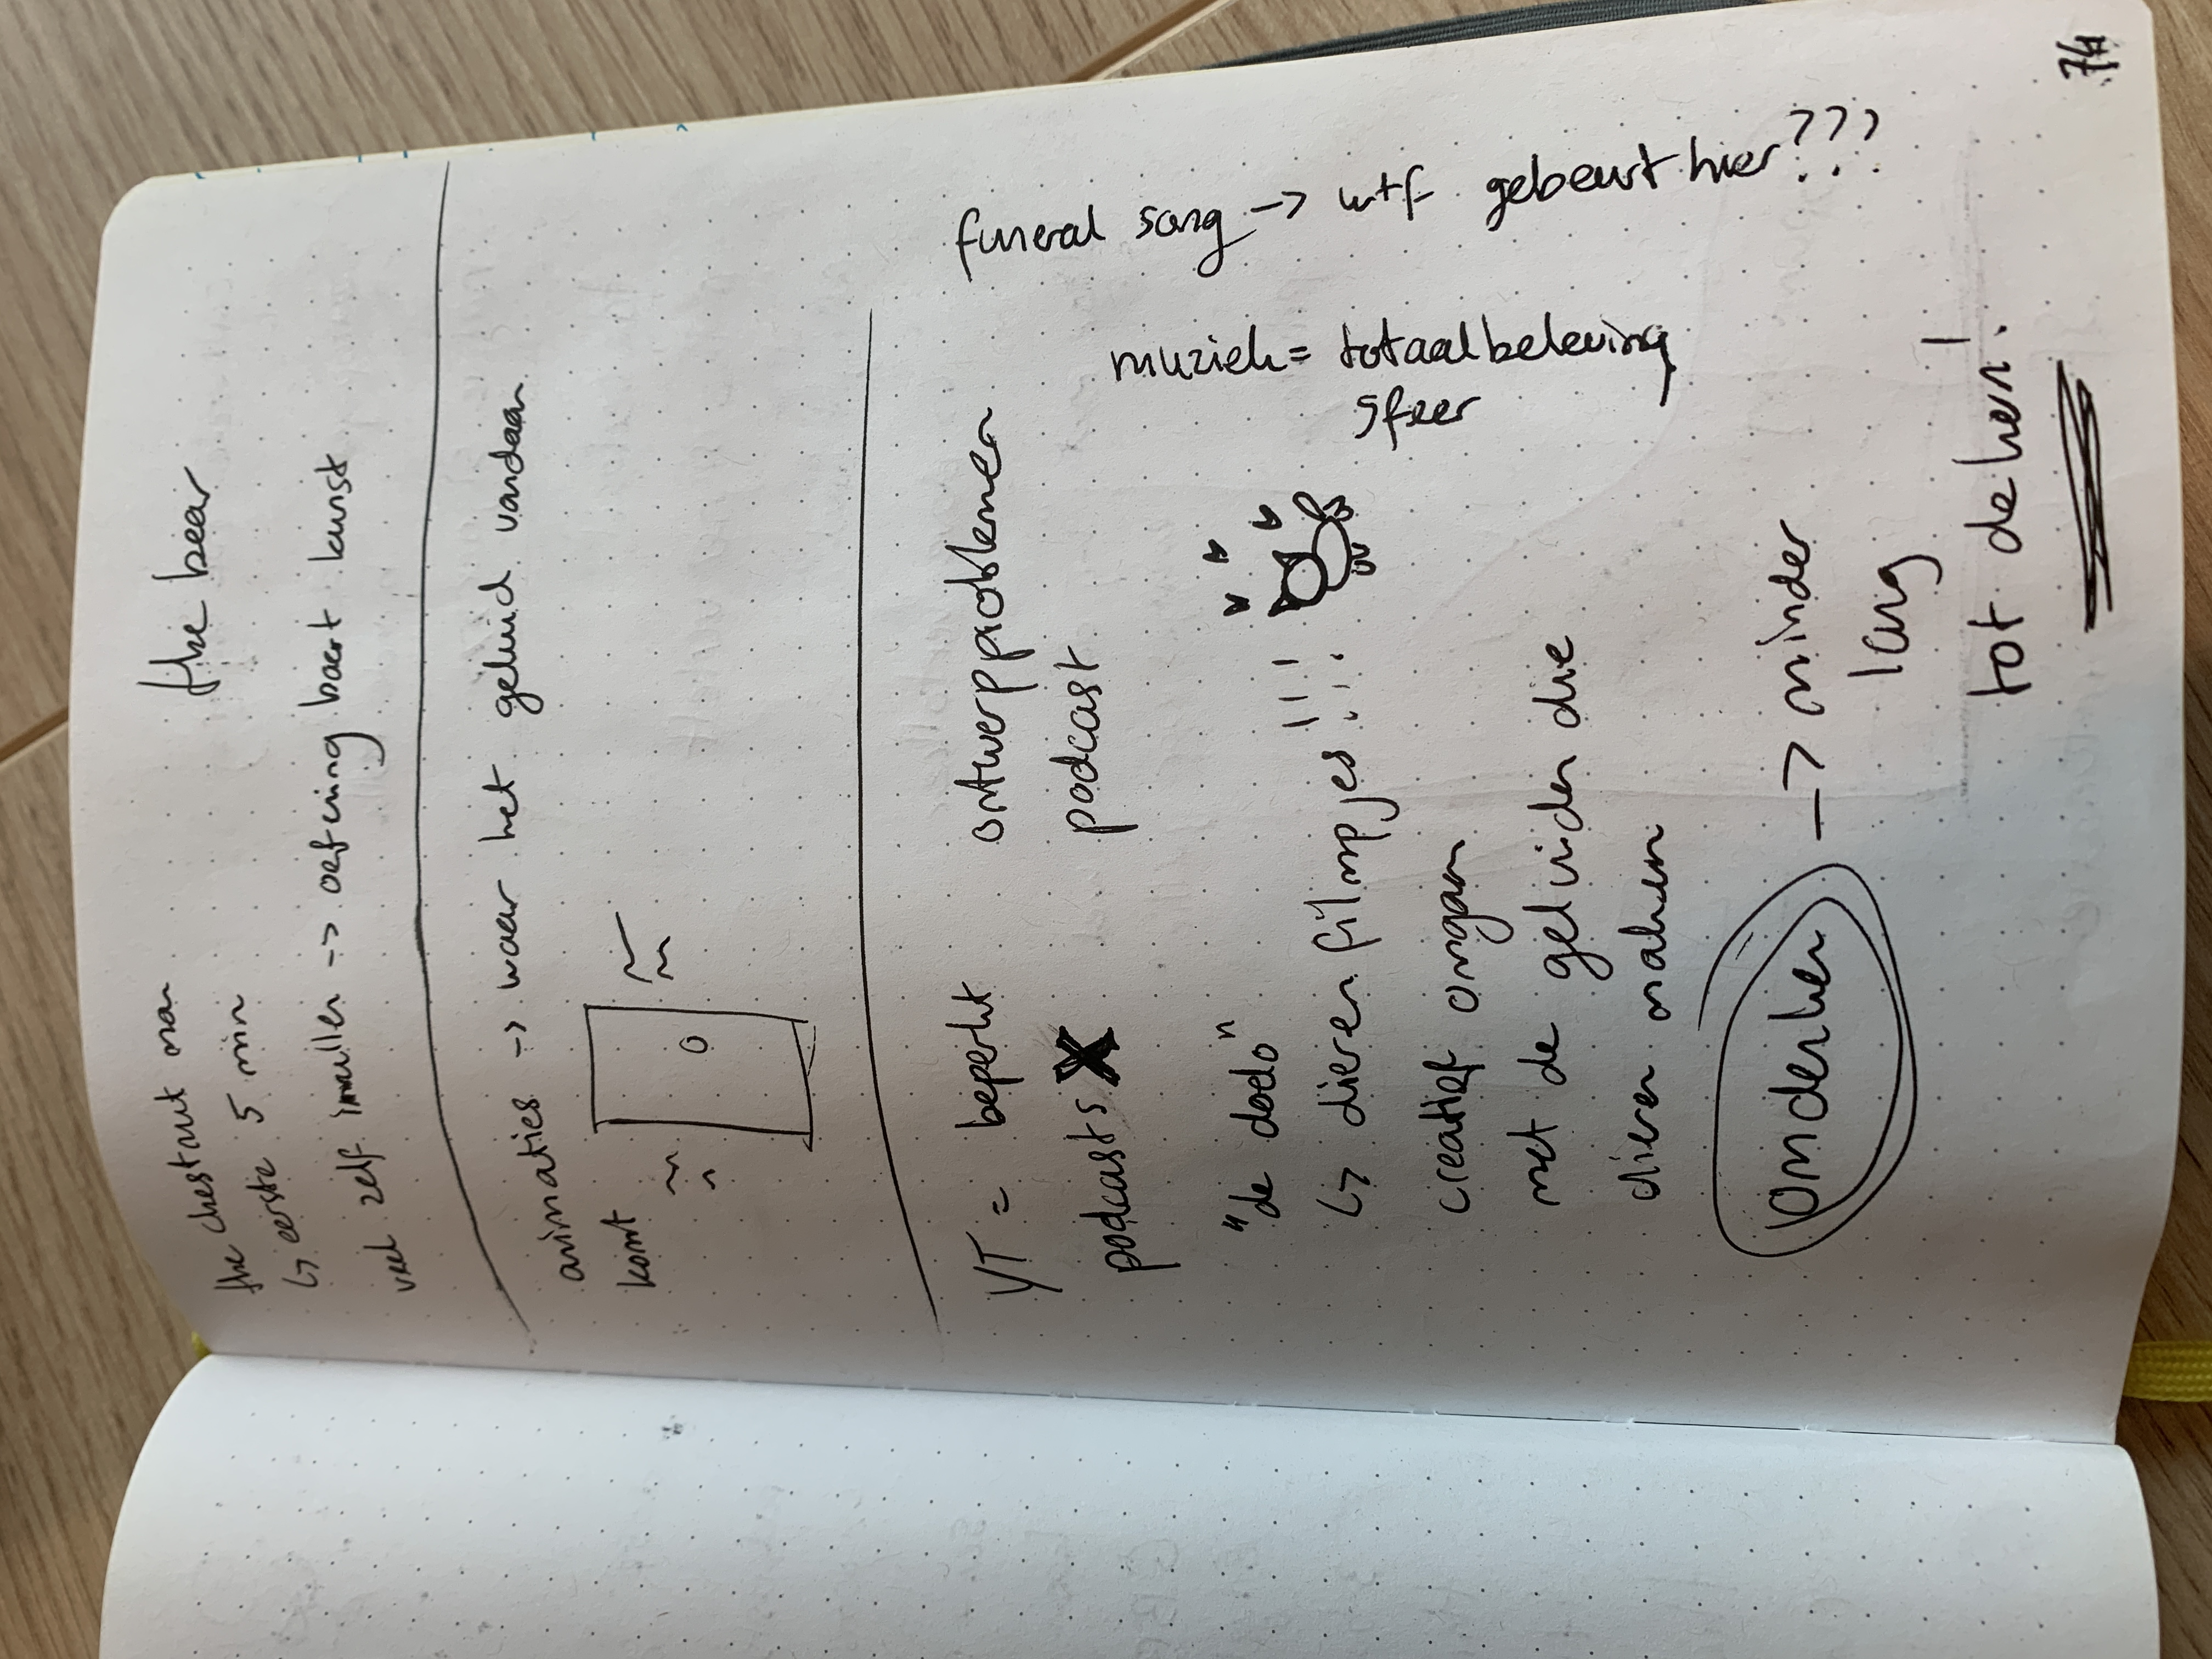 the chestnut man
↳ eerste 5 min
the bear
veel zelf invullen -> oefening baart kunst
animaties -> waar het geluid vandaan
komt
YT = beperkt
podcasts X
ontwerpproblemen
podcast
"de dodo"
↳ dierenfilmpjes!!!
creatief omgaan
met de geluiden die
dieren maken
omdenken -> minder
lang
tot de kern!
muziek = totaalbeleving
sfeer
funeral song -> wtf gebeurt hier???
74